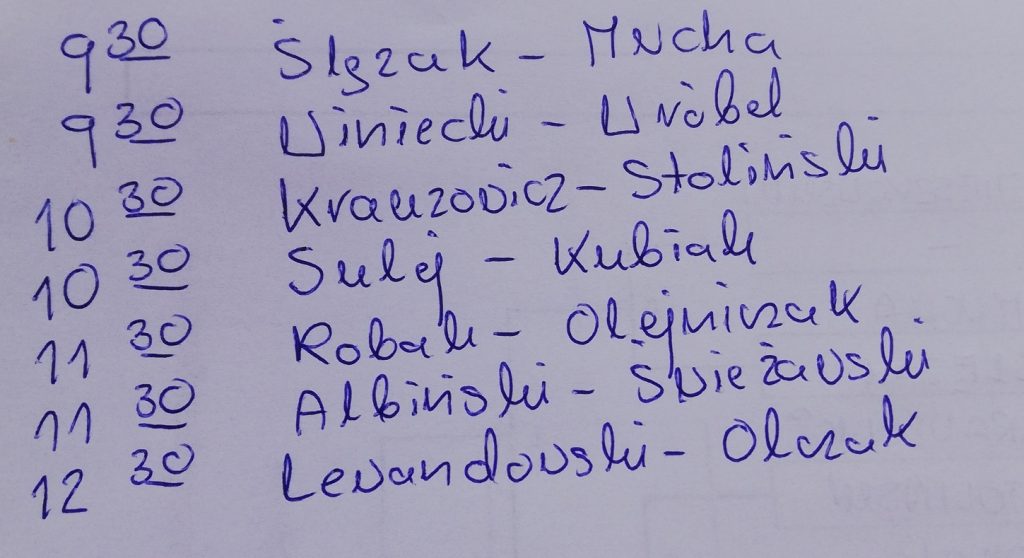 9 30 Ślęzak - Mucha
9 30 Winiecki - Wróbel
10 30 Krauzowicz - Stoliński
10 30 Sulej - Kubiak
11 30 Robak - Olejniczak
11 30 Albiński - Świeżawski
12 30 Lewandowski - Olczak